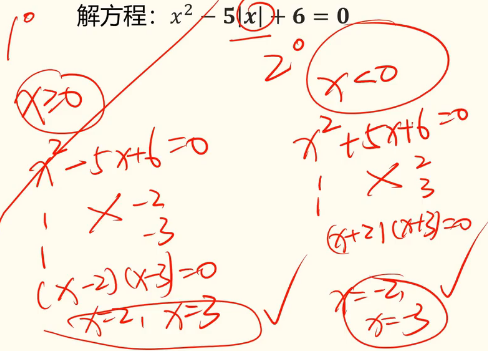 解方程：x² − 5|x| + 6 = 0
1°
x≥0
x² − 5x + 6 = 0
1 -2
1 -3
(x-2)(x-3)=0
x=2, x=3
2°
x<0
x² + 5x + 6 = 0
1 2
1 3
(x+2)(x+3)=0
x=-2,
x=-3